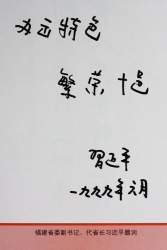 办出特色
繁荣十邑
習近平
一九九九年 月
福建省委副书记、代省长习近平题词